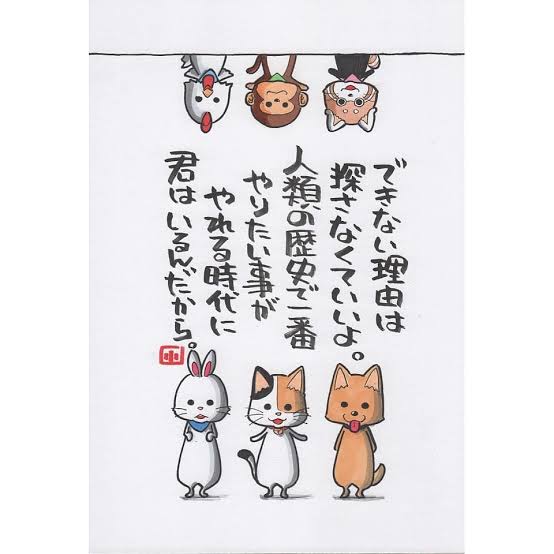 できない理由は
探さなくていいよ。
人類の歴史で一番
やりたい事が
やれる時代に
君はいるんだから。